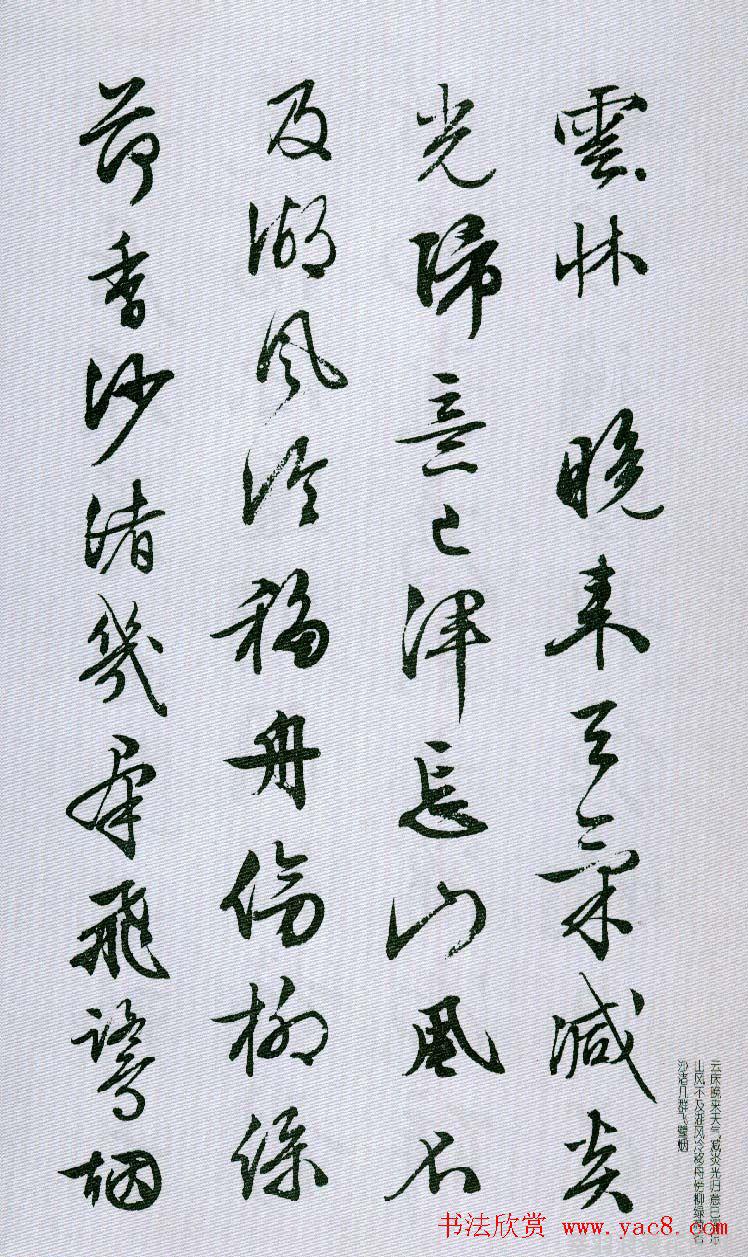 雲牀 晚来天氣減炎
光歸意已津忘山風不
及湖風冷移舟傍柳綠
荷香沙渚幾群飛鷺烟
云床晚来天气减炎光归意已
山风不及湖风冷移舟傍柳绿
沙渚几群飞鹭烟
书法欣赏 www.yac8.com